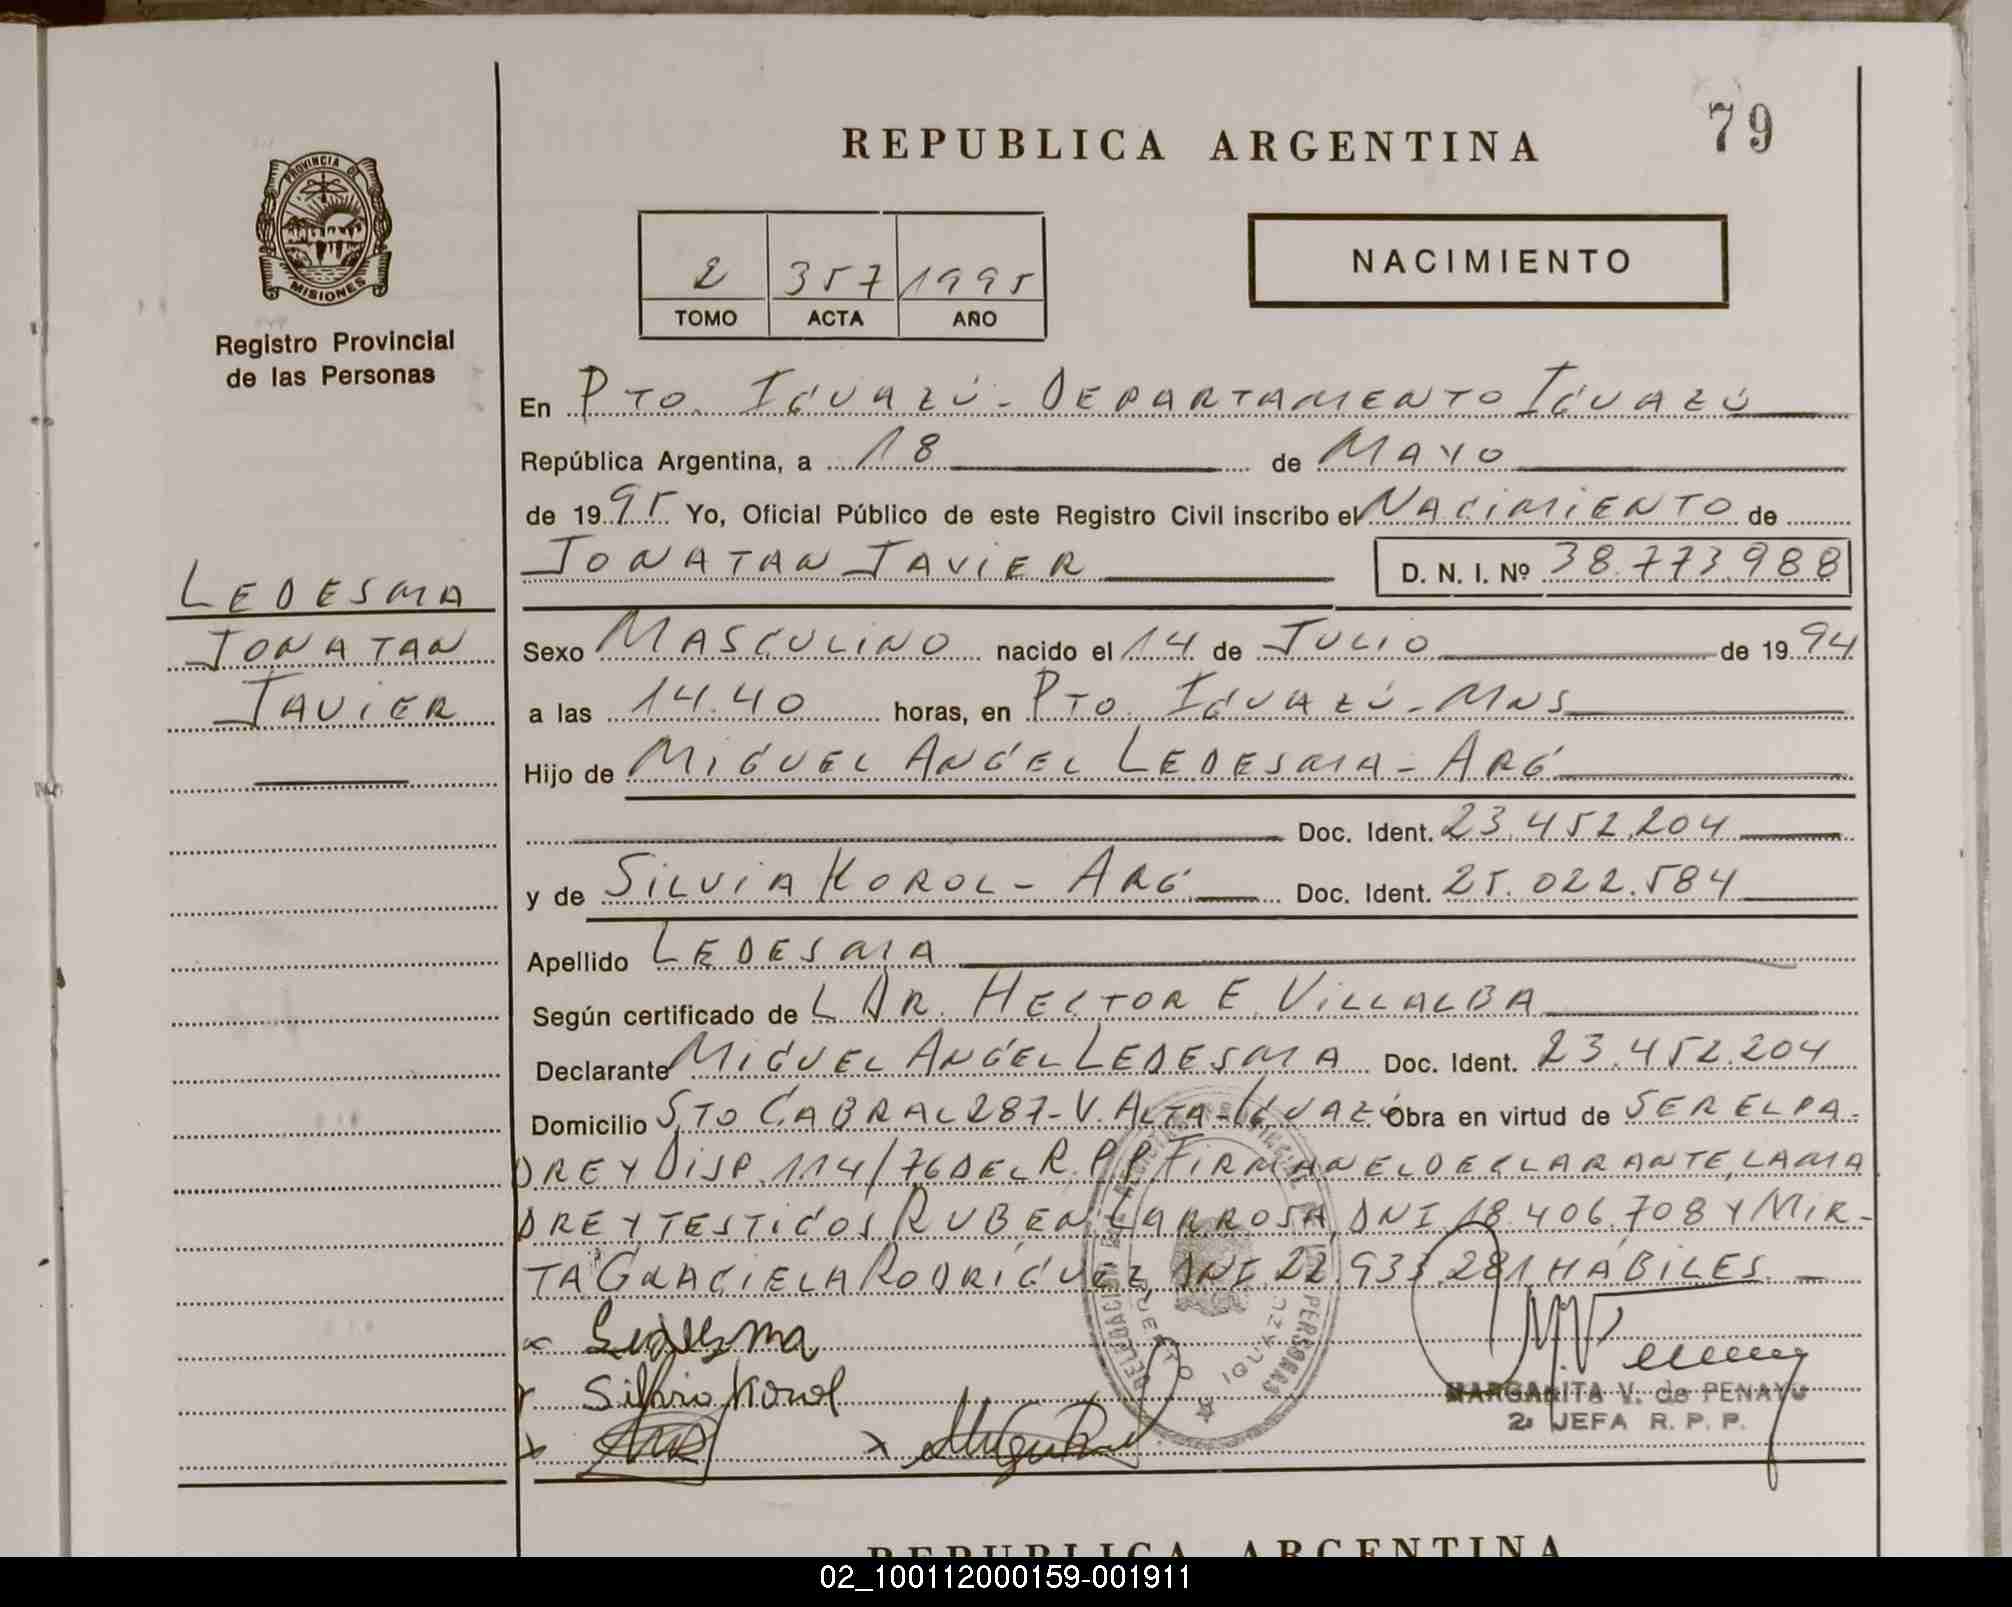 REPUBLICA ARGENTINA
79
PROVINCIA DE
MISIONES
Registro Provincial
de las Personas
2 357 1995
TOMO ACTA AÑO
NACIMIENTO
En PTO. IGUAZÚ - DEPARTAMENTO IGUAZÚ
República Argentina, a 18 de MAYO
de 1995 Yo, Oficial Público de este Registro Civil inscribo el NACIMIENTO de
JONATAN JAVIER D. N. I. Nº 38.773.988
LEDESMA
JONATAN
JAVIER
Sexo MASCULINO nacido el 14 de JULIO de 1994
a las 14.40 horas, en PTO. IGUAZÚ - MNS
Hijo de MIGUEL ANGEL LEDESMA - ARG
Doc. Ident. 23.452.204
y de SILVIA KOROL - ARG Doc. Ident. 25.022.584
Apellido LEDESMA
Según certificado de L DR. HECTOR E. VILLALBA
Declarante MIGUEL ANGEL LEDESMA Doc. Ident. 23.452.204
Domicilio STO CABRAL 287 - V. ALTA - IGUAZÚ Obra en virtud de SER EL PA-
DRE Y DISP. 114/76 DEL R.P.P. FIRMAN EL DECLARANTE, LA MA
DRE Y TESTIGOS RUBEN LARROSA, DNI 18.406.708 Y MIR-
TA GRACIELA RODRÍGUEZ, DNI 22.933.281 HÁBILES.
x Ledesma
x Silvia Korol
x x
MARGARITA V. de PENAYO
2ª JEFA R. P. P.
REPUBLICA ARGENTINA
02_100112000159-001911